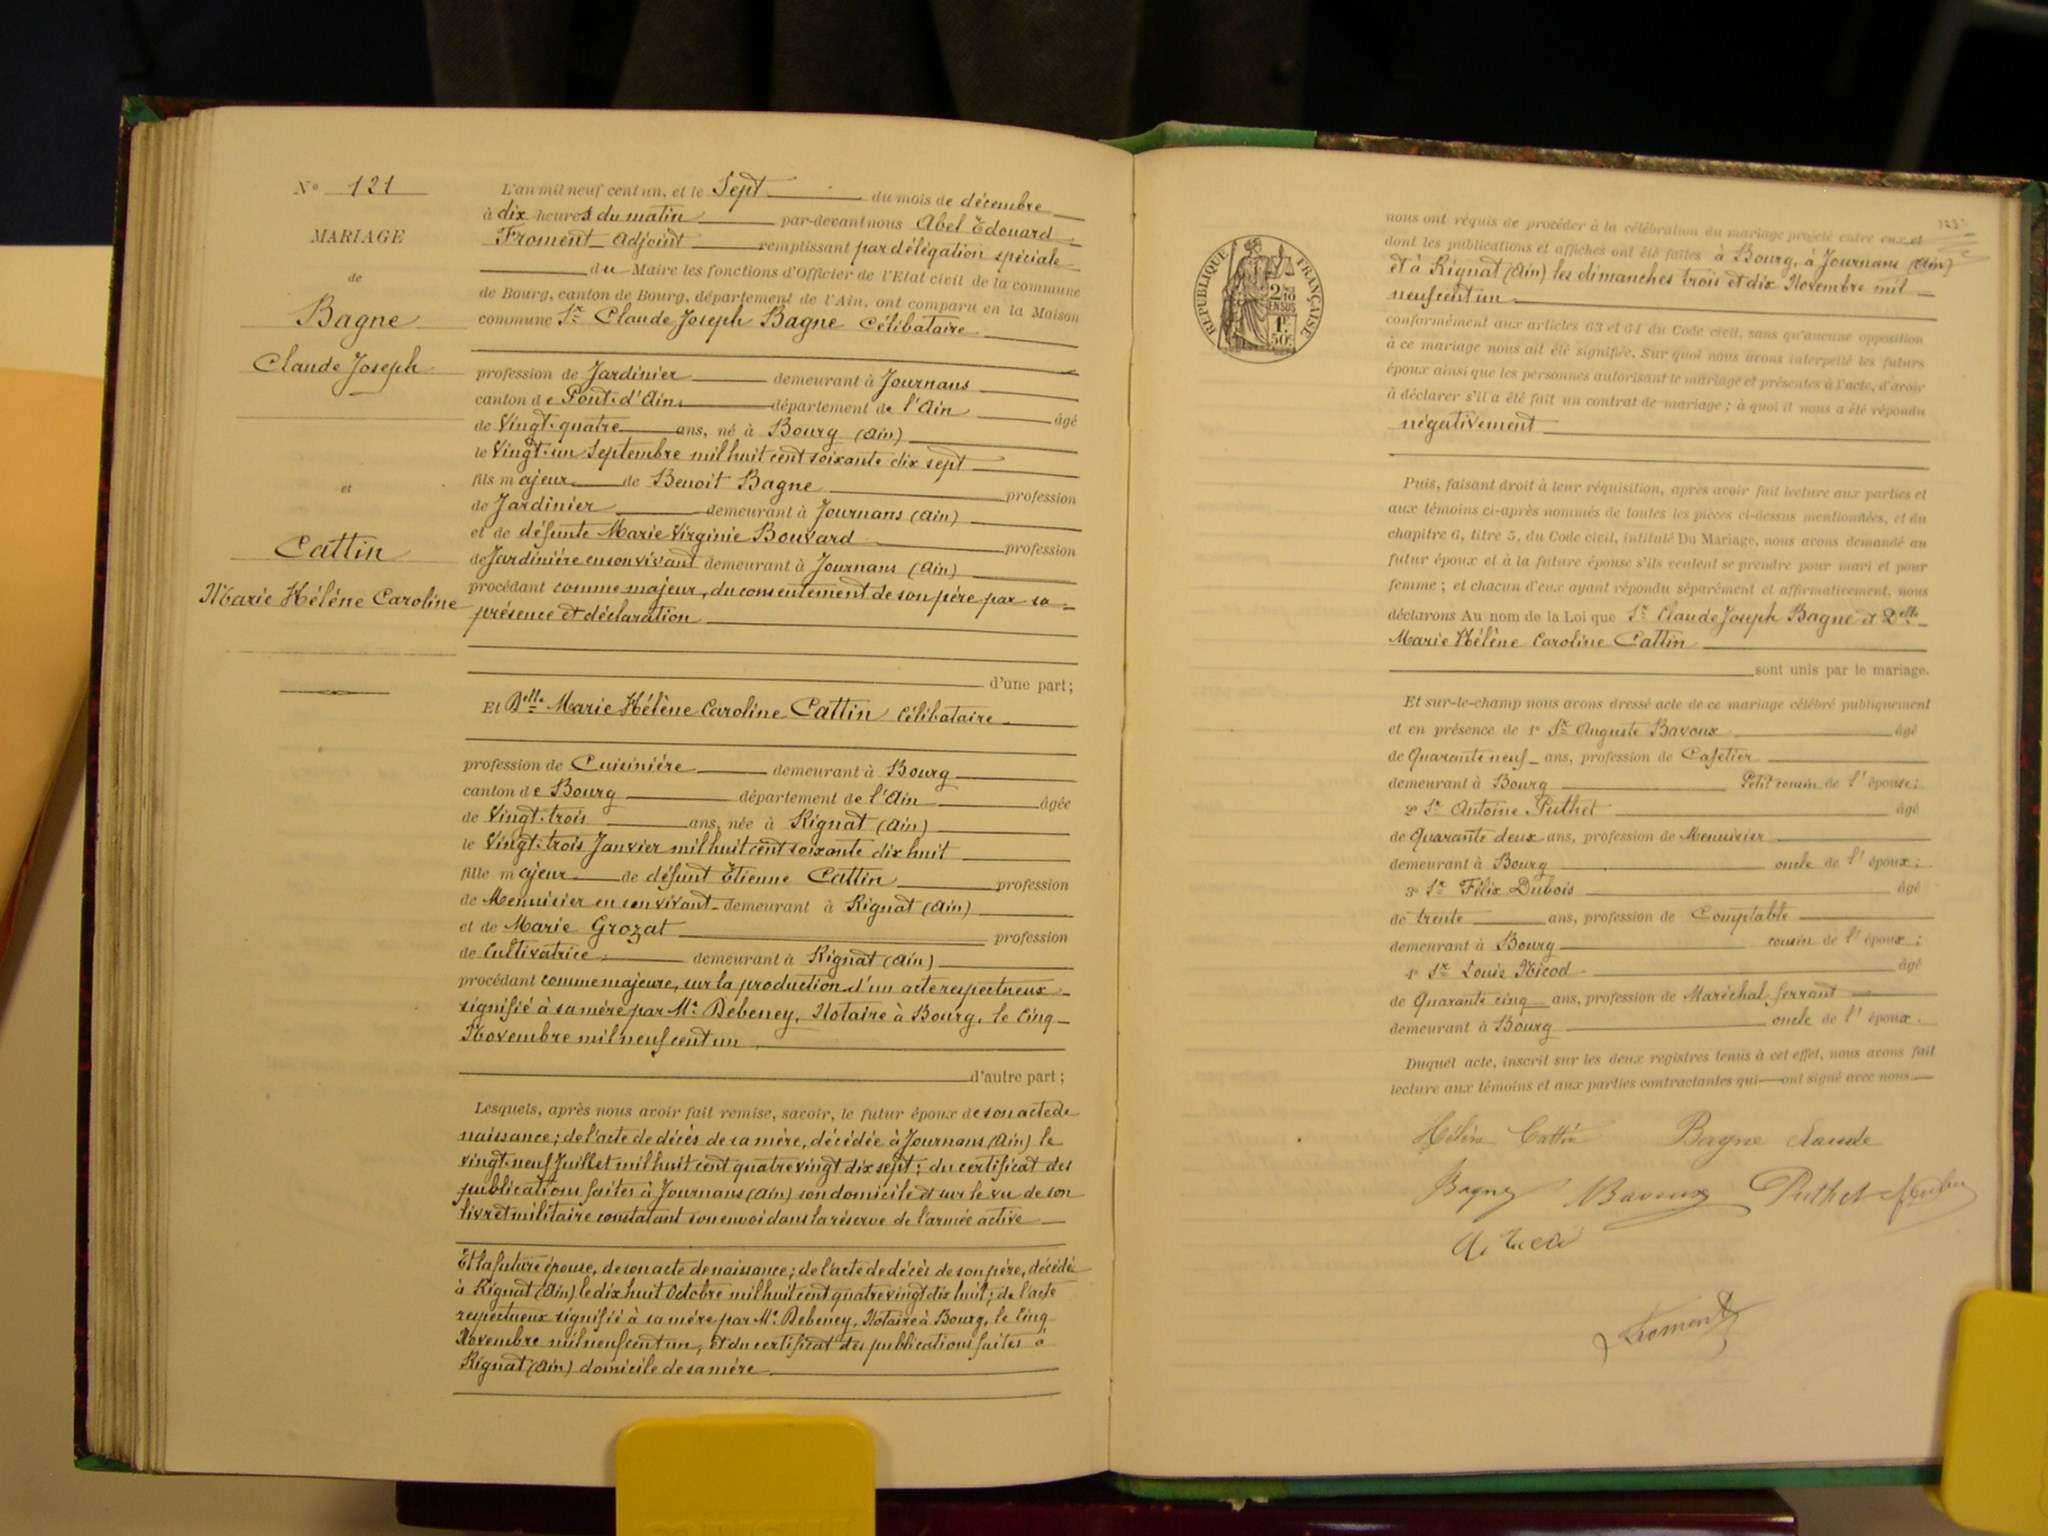 N° 121
MARIAGE
de
Bagne
Claude Joseph
et
Cattin
Marie Hélène Caroline
L'an mil neuf cent un, et le Sept du mois de décembre
à dix heures du matin par-devant nous Abel Edouard
Froment Adjoint remplissant par délégation spéciale
du Maire les fonctions d'Officier de l'Etat civil de la commune
de Bourg, canton de Bourg, département de l'Ain, ont comparu en la Maison
commune Sr Claude Joseph Bagne Célibataire
profession de Jardinier demeurant à Journans
canton de Pont-d'Ain département de l'Ain âgé
de Vingt-quatre ans, né à Bourg (Ain)
le Vingt-un Septembre mil huit cent soixante dix sept
fils majeur de Benoit Bagne profession
de Jardinier demeurant à Journans (Ain)
et de défunte Marie Virginie Bouvard profession
de Jardinière en son vivant demeurant à Journans (Ain)
procédant comme majeur, du consentement de son père par sa
présence et déclaration
d'une part;
Et Delle Marie Hélène Caroline Cattin Célibataire
profession de Cuisinière demeurant à Bourg
canton de Bourg département de l'Ain âgée
de Vingt-trois ans, née à Rignat (Ain)
le Vingt-trois Janvier mil huit cent soixante dix huit
fille majeur de défunt Etienne Cattin profession
de Menuisier en son vivant demeurant à Rignat (Ain)
et de Marie Grozat profession
de Cultivatrice demeurant à Rignat (Ain)
procédant comme majeure, sur la production d'un acte respectueux
signifié à sa mère par Me Debeney, Notaire à Bourg, le Cinq
Novembre mil neuf cent un
d'autre part;
Lesquels, après nous avoir fait remise, savoir, le futur époux de son acte de
naissance; de l'acte de décès de sa mère, décédée à Journans (Ain) le
vingt-neuf Juillet mil huit cent quatre vingt dix sept; du certificat des
publications faites à Journans (Ain) son domicile et sur le vu de son
livret militaire constatant son envoi dans la réserve de l'armée active
Et la future épouse, de son acte de naissance; de l'acte de décès de son père, décédé
à Rignat (Ain) le dix huit Octobre mil huit cent quatre vingt dix huit; de l'acte
respectueux signifié à sa mère par Me Debeney, Notaire à Bourg, le Cinq
Novembre mil neuf cent un, et du certificat des publications faites à
Rignat (Ain) domicile de sa mère
REPUBLIQUE FRANÇAISE
2/10
EN SUS
1F
50c
nous ont réquis de procéder à la célébration du mariage projeté entre eux et
dont les publications et affiches ont été faites à Bourg, à Journans (Ain)
et à Rignat (Ain) les dimanches trois et dix Novembre mil
neuf cent un
conformément aux articles 63 et 64 du Code civil, sans qu'aucune opposition
à ce mariage nous ait été signifiée. Sur quoi nous avons interpellé les futurs
époux ainsi que les personnes autorisant le mariage et présentes à l'acte, d'avoir
à déclarer s'il a été fait un contrat de mariage; à quoi il nous a été répondu
négativement
Puis, faisant droit à leur réquisition, après avoir fait lecture aux parties et
aux témoins ci-après nommés de toutes les pièces ci-dessus mentionnées, et du
chapitre 6, titre 5, du Code civil, intitulé Du Mariage, nous avons demandé au
futur époux et à la future épouse s'ils veulent se prendre pour mari et pour
femme; et chacun d'eux ayant répondu séparément et affirmativement, nous
déclarons Au nom de la Loi que Sr Claude Joseph Bagne et Delle
Marie Hélène Caroline Cattin
sont unis par le mariage.
Et sur-le-champ nous avons dressé acte de ce mariage célébré publiquement
et en présence de 1° Sr Auguste Bavoux âgé
de Quarante neuf ans, profession de Cafetier
demeurant à Bourg Petit cousin de l'épouse;
2° Sr Antoine Puthet âgé
de Quarante deux ans, profession de Menuisier
demeurant à Bourg oncle de l'époux;
3° Sr Félix Dubois âgé
de trente ans, profession de Comptable
demeurant à Bourg cousin de l'époux;
4° Sr Louis Nicod âgé
de Quarante cinq ans, profession de Maréchal ferrant
demeurant à Bourg oncle de l'époux.
Duquel acte, inscrit sur les deux registres tenus à cet effet, nous avons fait
lecture aux témoins et aux parties contractantes qui ont signé avec nous
Hélène Cattin Bagne Claude
Bagne Bavoux Puthet
Froment